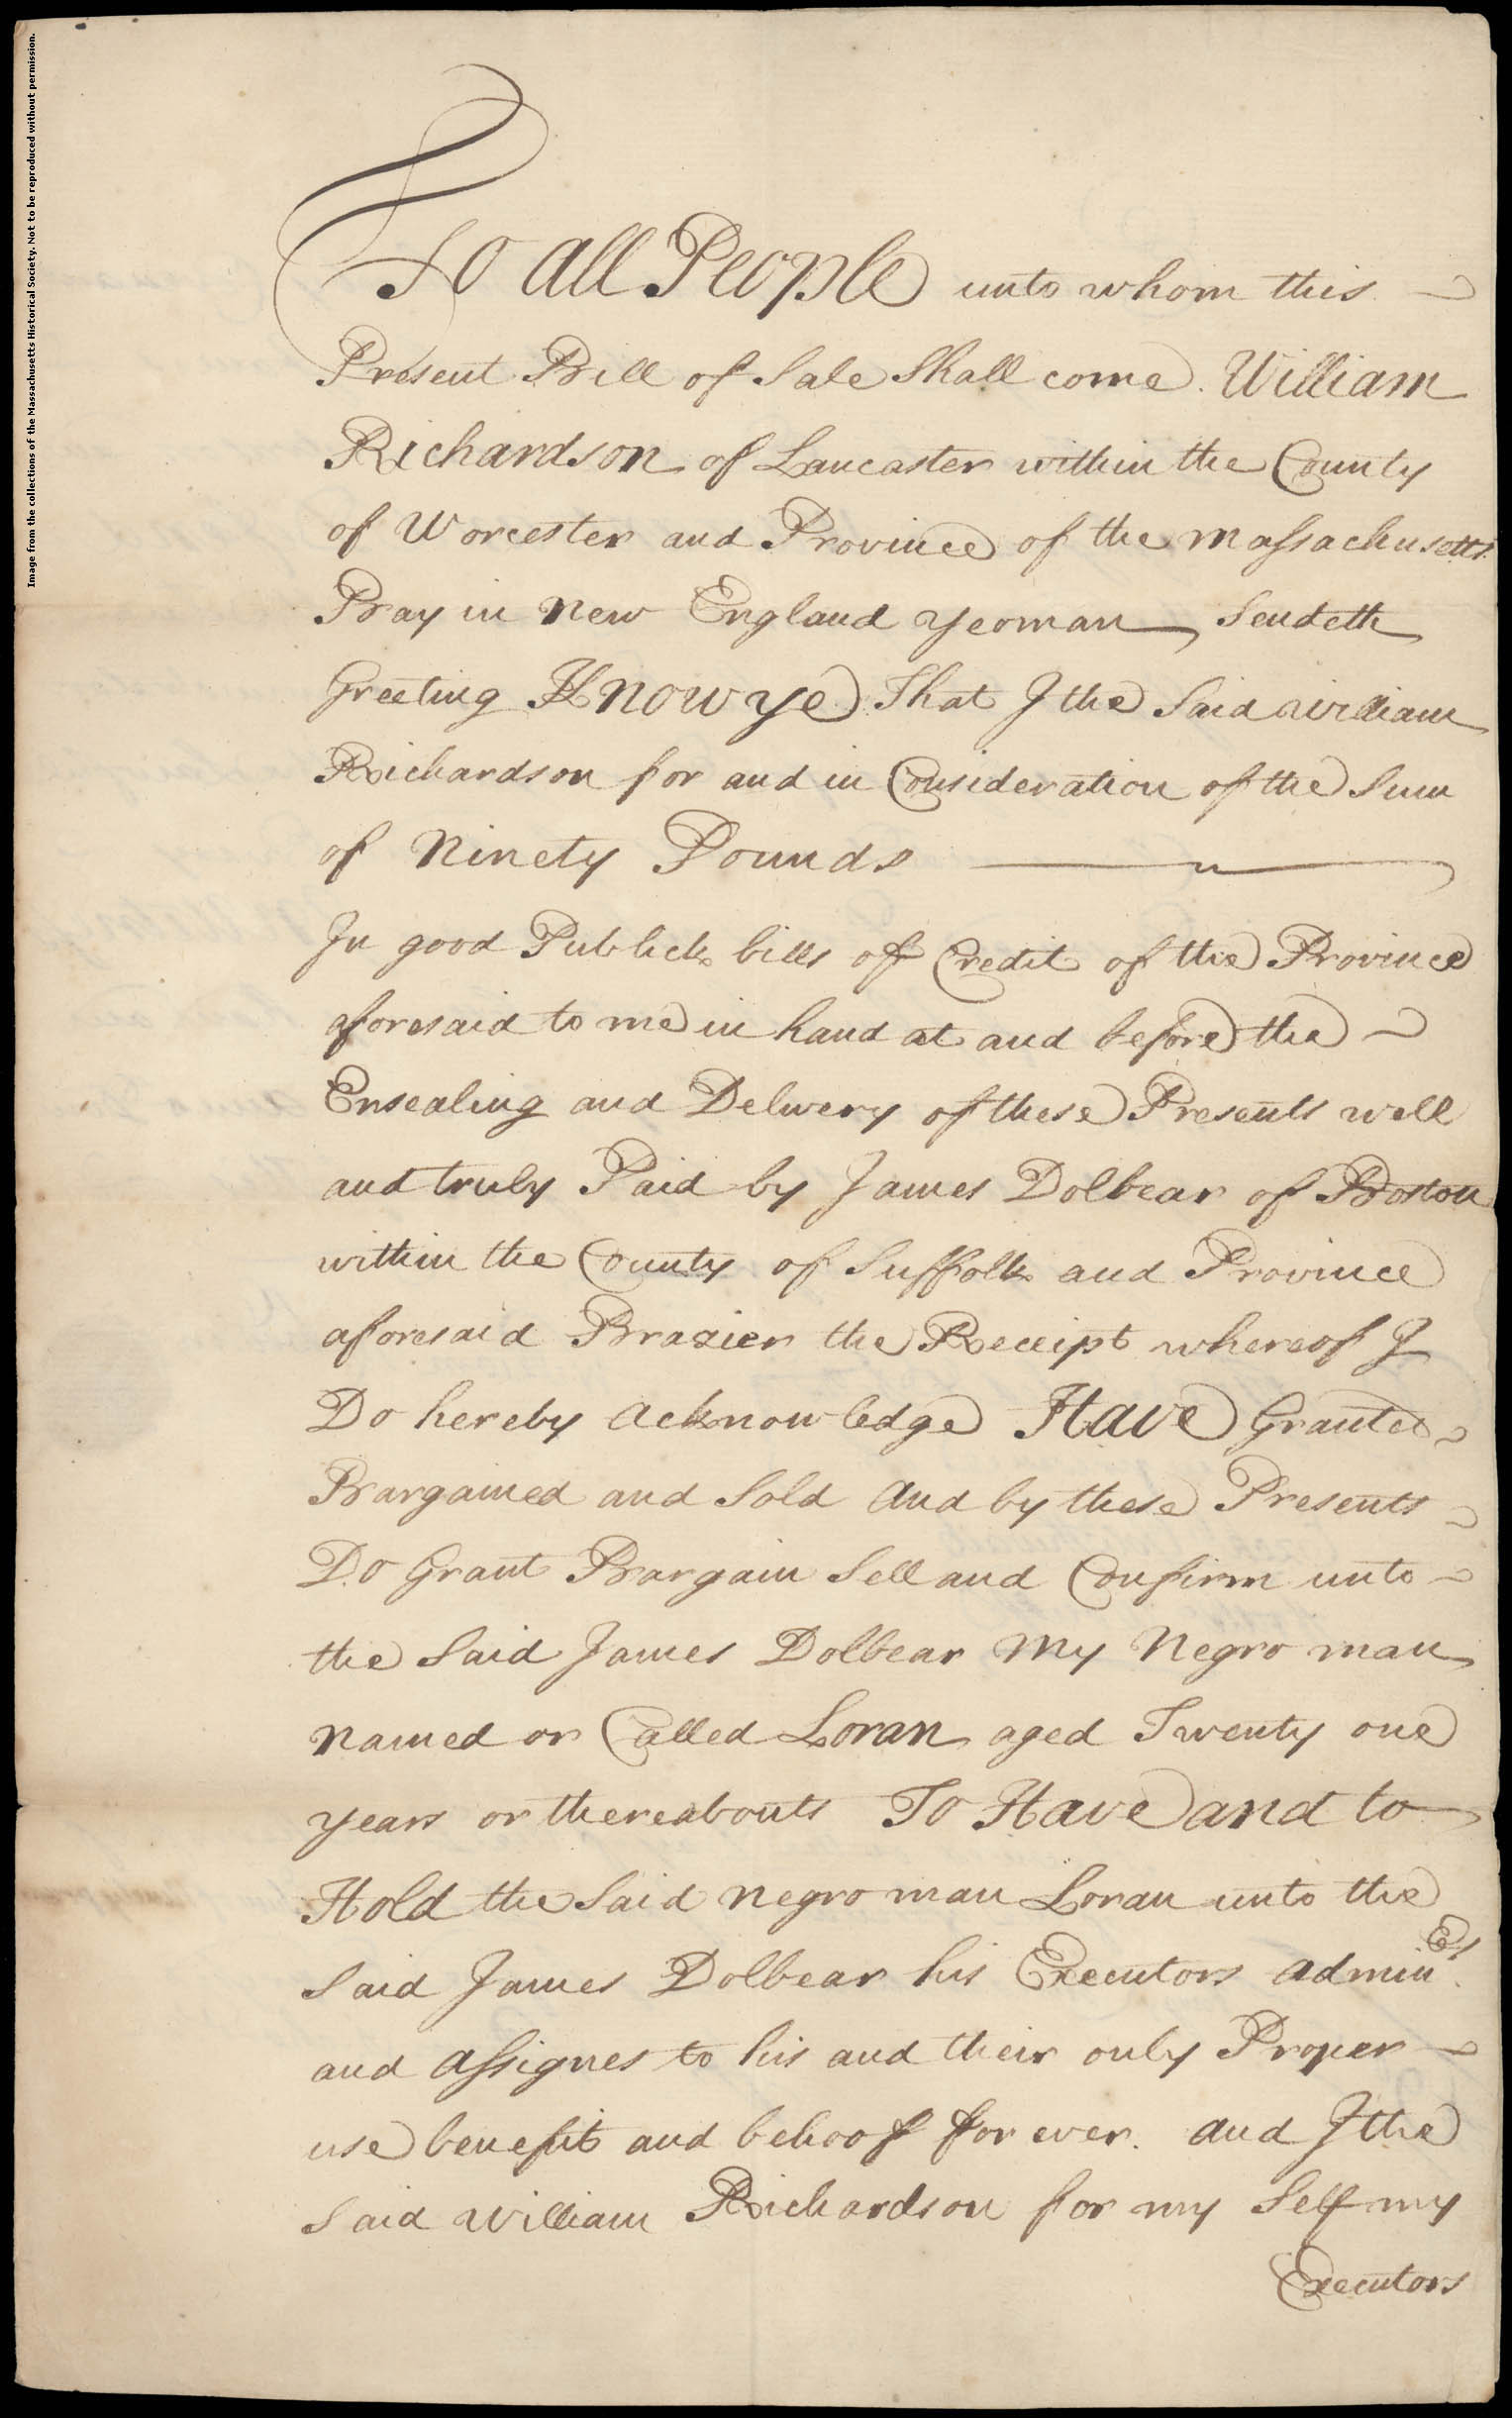 Image from the collections of the Massachusetts Historical Society. Not to be reproduced without permission.
To all People unto whom this
Present Bill of Sale Shall come. William
Richardson of Lancaster within the County
of Worcester and Province of the Massachusetts
Bay in New England Yeoman Sendeth
Greeting Know ye That I the Said William
Richardson for and in Consideration of the Sum
of Ninety Pounds
In good Publick bills of Credit of the Province
aforesaid to me in hand at and before the
Ensealing and Delivery of these Presents well
and truly Paid by James Dolbear of Boston
within the County of Suffolk and Province
aforesaid Brazier the Receipt whereof I
Do hereby acknowledge Have Granted
Bargained and Sold and by these Presents
Do Grant Bargain Sell and Confirm unto
the Said James Dolbear My Negro man
named or Called Loran aged Twenty one
years or thereabouts To Have and to
Hold the Said negro man Loran unto the
Said James Dolbear his Executors admin.rs
and assignes to his and their only Proper
use benefit and behoof for ever. and I the
Said William Richardson for my Self my
Executors